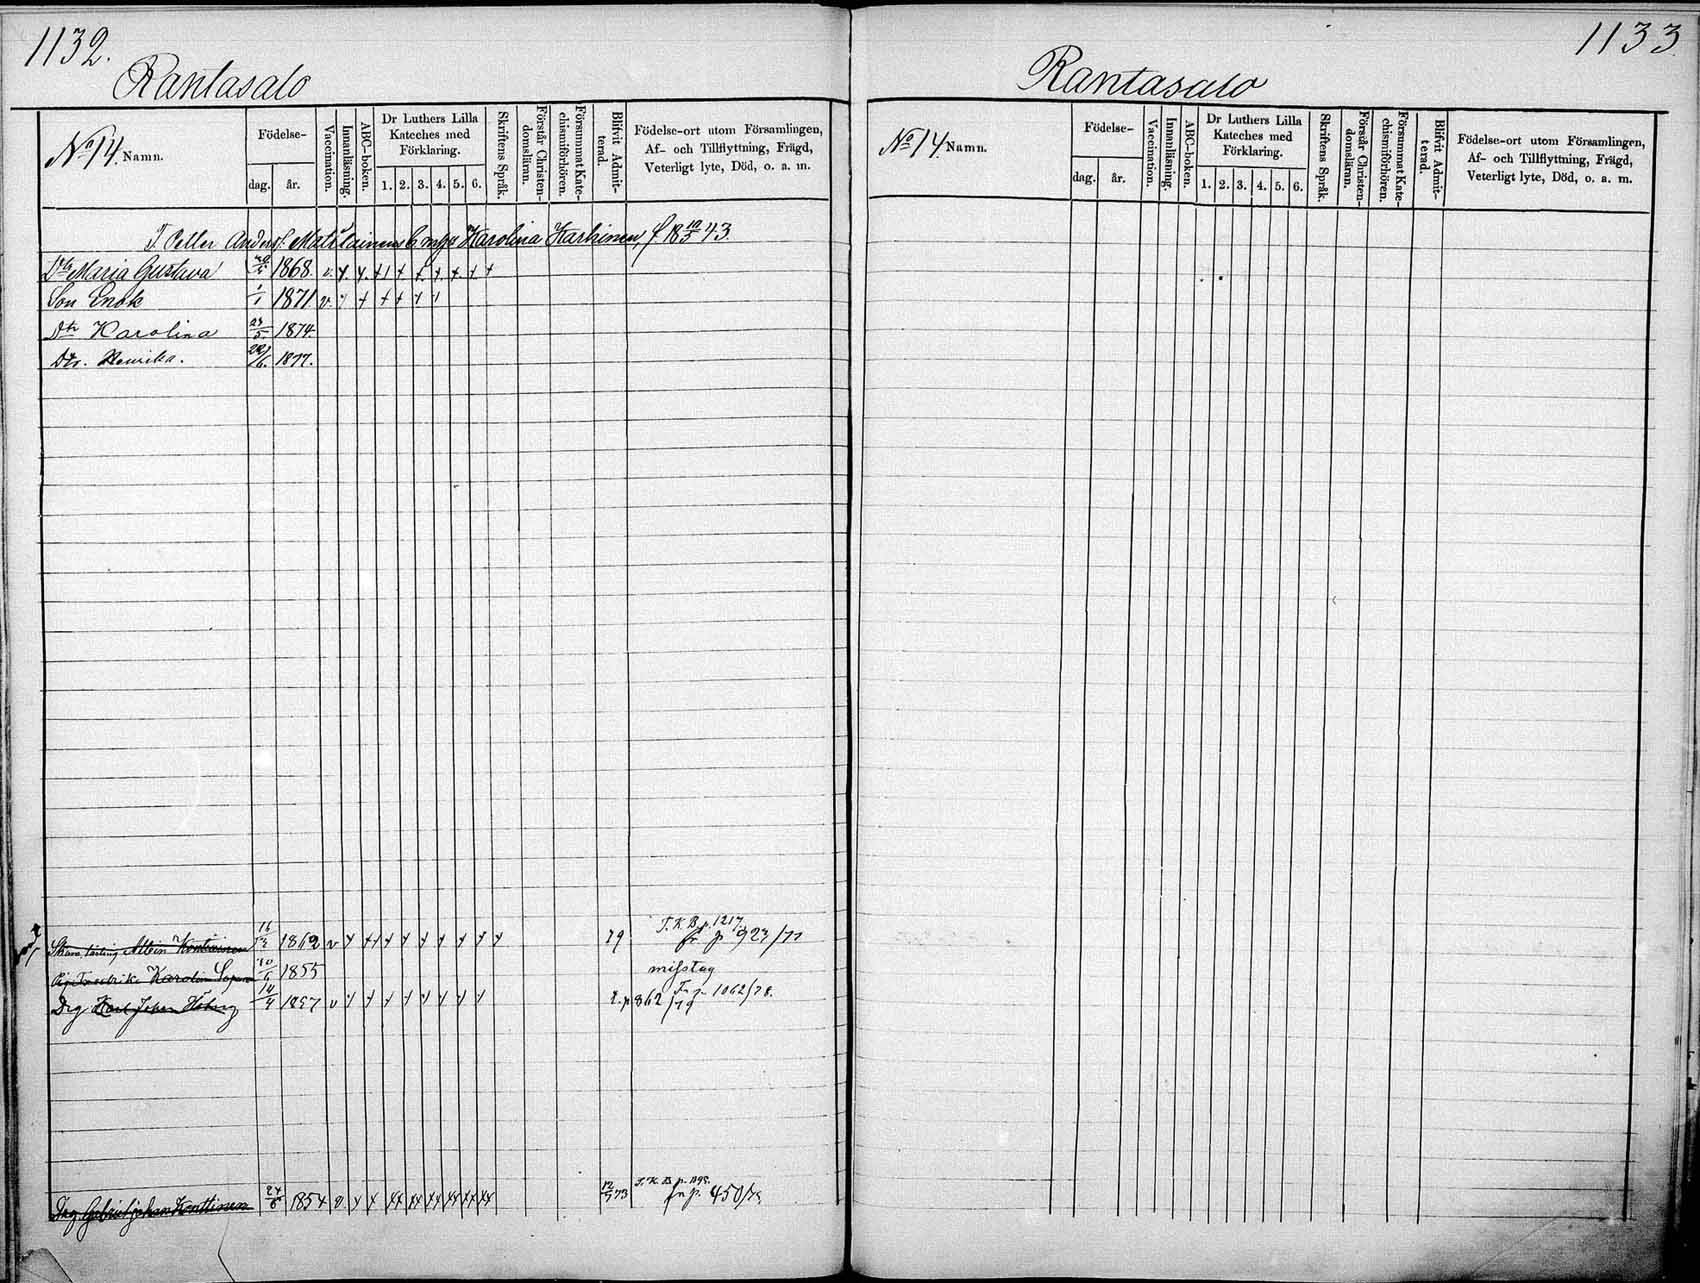 1132.
Rantasalo
No 14. Namn.
Födelse-
dag. år.
Vaccination.
Innanläsning.
ABC-boken.
Dr Luthers Lilla
Kateches med
Förklaring.
1. 2. 3. 4. 5. 6.
Skriftens Språk.
Förstår Christen-
domsläran.
Försummat Kate-
chismiförhören.
Blifvit Admit-
terad.
Födelse-ort utom Församlingen,
Af- och Tillflyttning, Frägd,
Veterligt lyte, Död, o. a. m.
Petter Anders Karolina Karhinen, f 18 10/5 43.
Dtr Maria Gustava 1868. v. x x x x x x x x x
Son Enok 1/1 1871 v. x x x x x x
Dtr Karolina 23/5 1874.
Dtr. Henrika. 1877.
Albin Konttinen 16 1862 v x x x x x x x x x 79 T.K.B. p. 1217. fr p 923/77
Karolin 10/6 1855 misstag
Drg Karl Johan 14/4 1857 v x x x x x x x x p 862/79 Fr p 1062/78.
Drg Gabriel Johan Konttinen 24/6 1854 v x x xx xx xx xx xx xx 12/7 73 fr p. 450/79
1133
Rantasalo
No 14. Namn.
Födelse-
dag. år.
Vaccination.
Innanläsning.
ABC-boken.
Dr Luthers Lilla
Kateches med
Förklaring.
1. 2. 3. 4. 5. 6.
Skriftens Språk.
Förstår Christen-
domsläran.
Försummat Kate-
chismiförhören.
Blifvit Admit-
terad.
Födelse-ort utom Församlingen,
Af- och Tillflyttning, Frägd,
Veterligt lyte, Död, o. a. m.